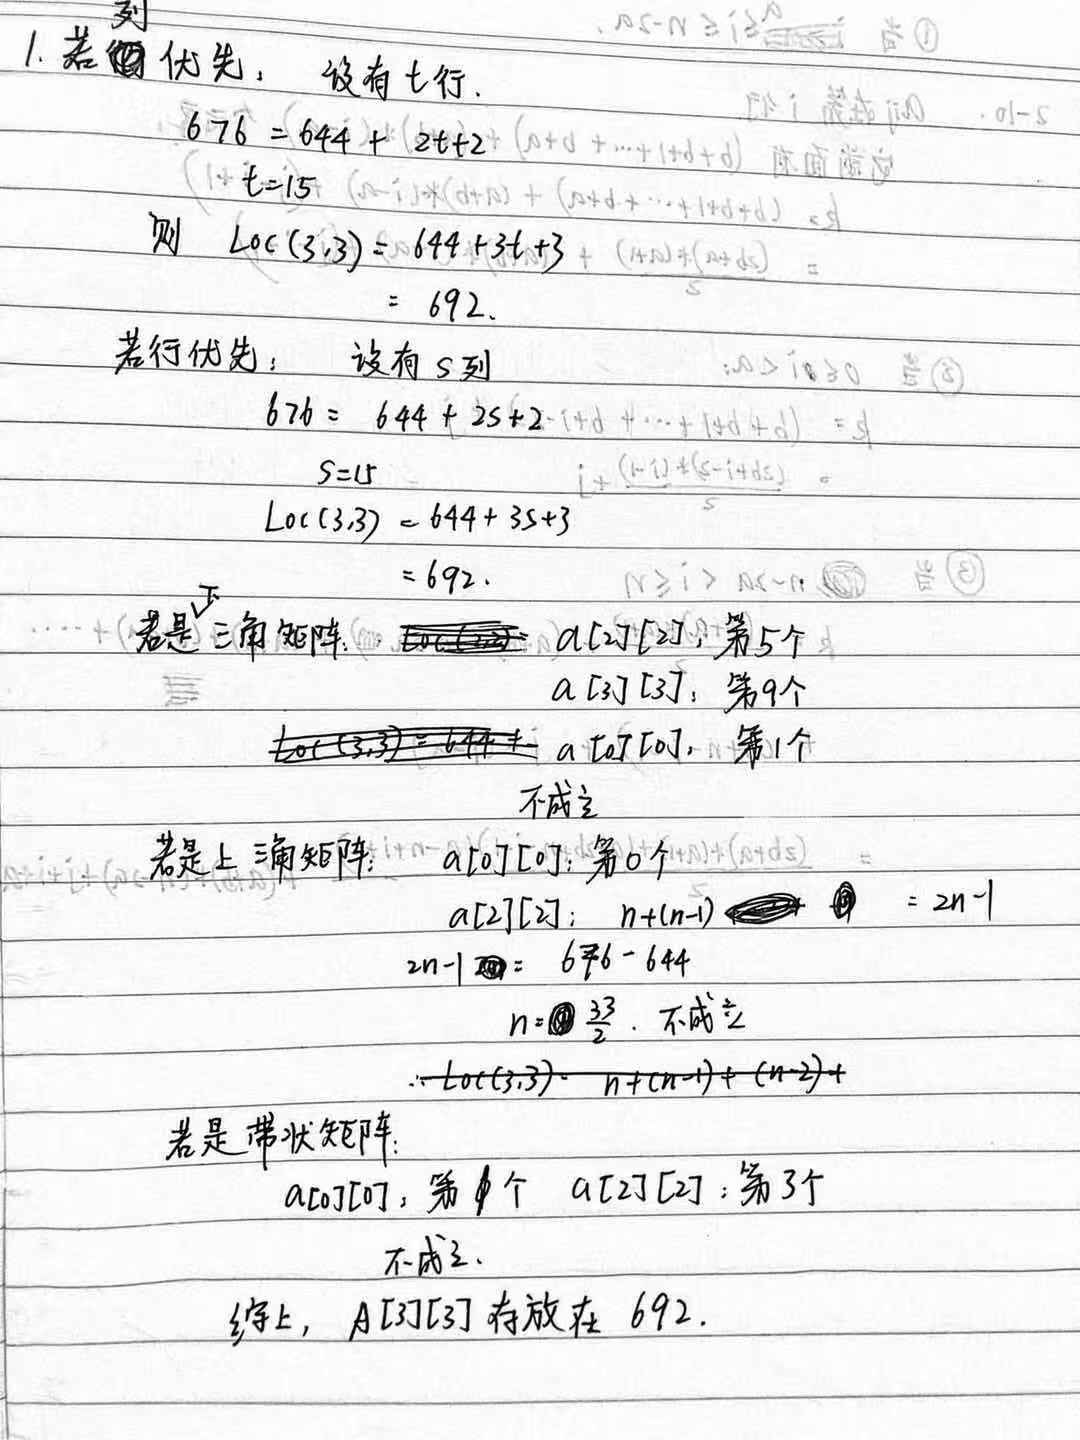 列
1. 若优先： 设有t行.
676 = 644 + 2t+2
t=15
则 Loc(3,3) = 644+3t+3
= 692.
若行优先： 设有s列
676 = 644 + 2s+2
s=15
Loc(3,3) = 644+3s+3
= 692.
下
若是三角矩阵： a[2][2]：第5个
a[3][3]：第9个
Loc(3,3) = 644 + a[0][0]：第1个
不成立
若是上三角矩阵： a[0][0]：第0个
a[2][2]： n+(n-1) = 2n-1
2n-1 = 676-644
n= 33/2 . 不成立
∴ Loc(3,3) = n+(n-1)+(n-2)+
若是带状矩阵：
a[0][0]：第个 a[2][2]：第3个
不成立.
综上， A[3][3]存放在 692.